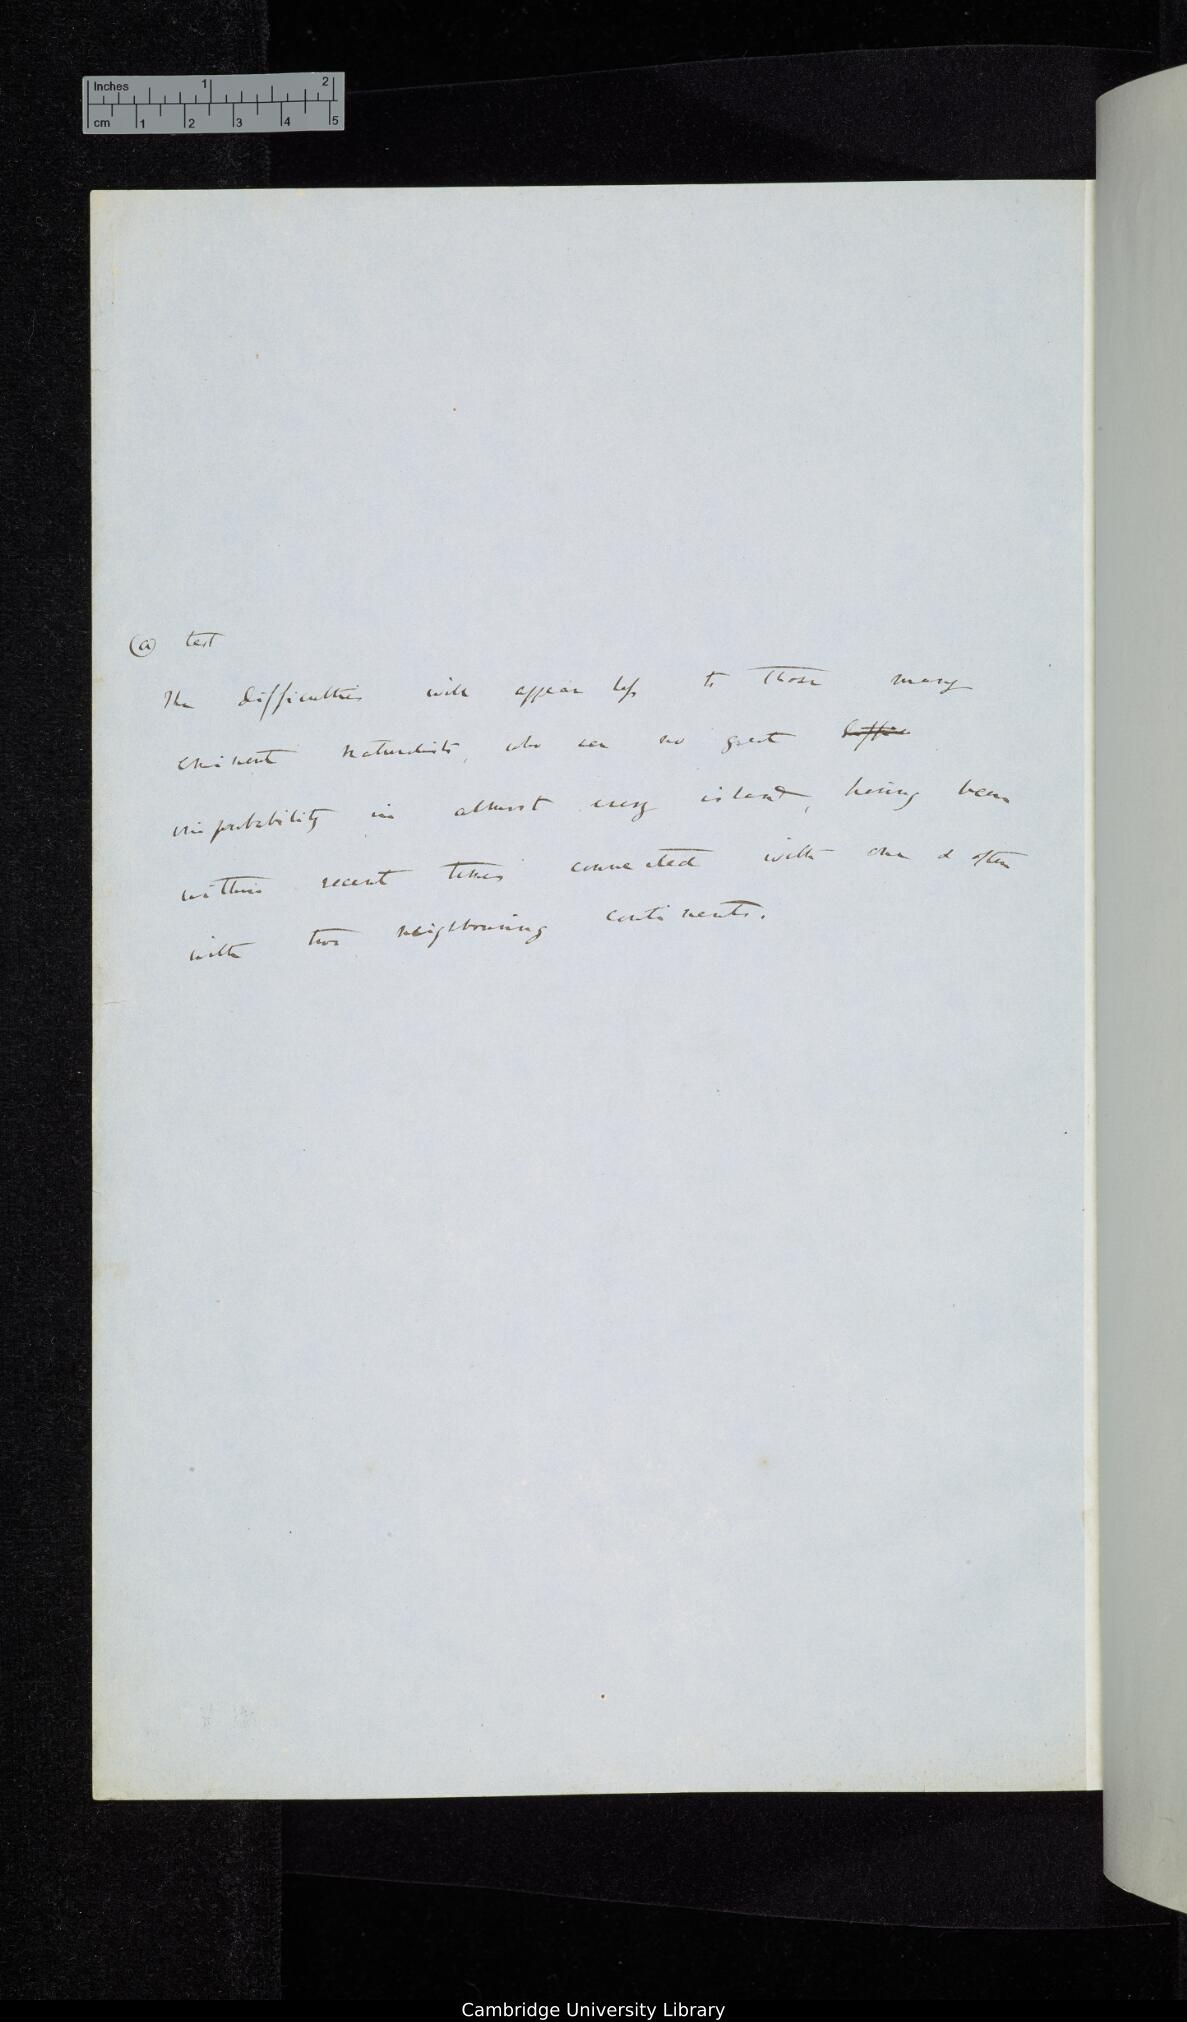 Inches 1 2
cm 1 2 3 4 5
(a) text
The difficulties will appear less to those many
eminent naturalists, who see no great diffic
improbability in almost every island, having been
within recent times connected with one & often
with two neighbouring continents.
Cambridge University Library